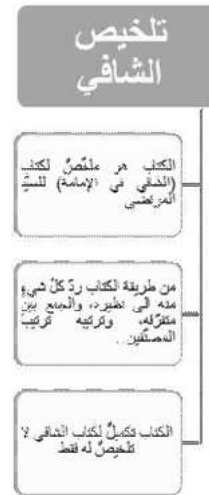 تلخيص
الشافي
الكتاب هو ملخصٌ لكتاب
(الشافي في الإمامة) للسيّد
المرتضى
من طريقة الكتاب ردّ كلّ شيء
منه الى نظيره، والجمع بين
متفرّقه، وترتيبه ترتيب
المصنّفين..
الكتاب تكميلٌ لكتاب الشافي لا
تلخيصٌ له فقط